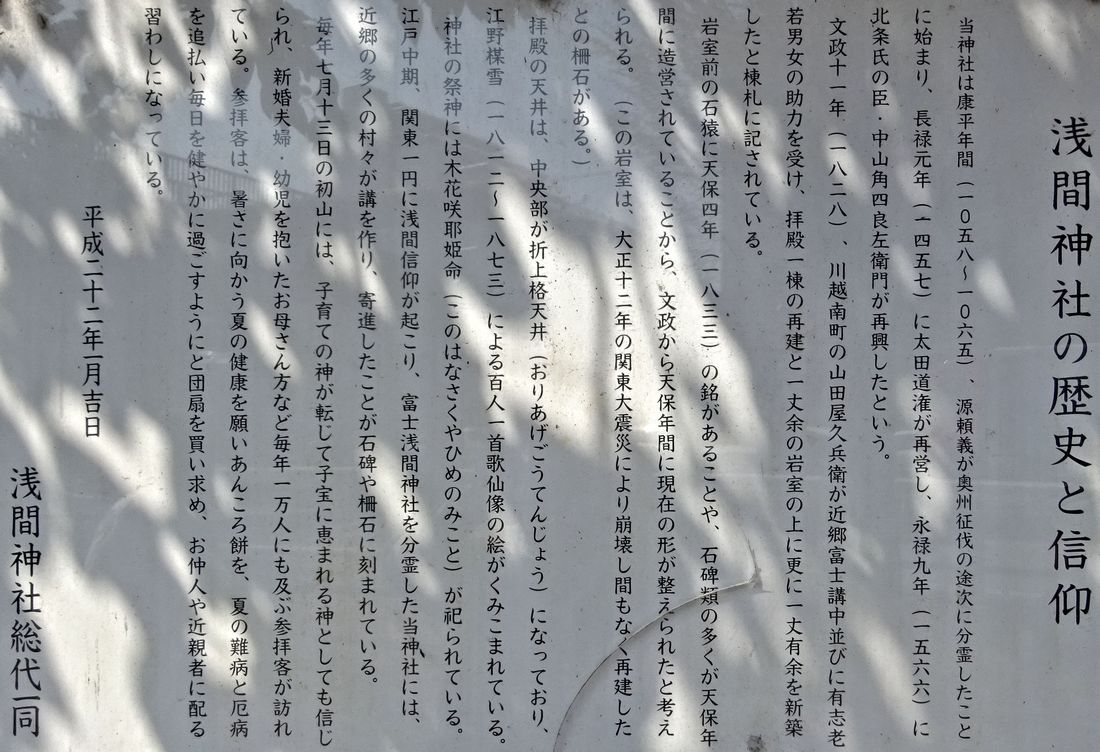 浅間神社の歴史と信仰
当神社は康平年間（一０五八～一０六五）、源頼義が奥州征伐の途次に分霊したこと
に始まり、長禄元年（一四五七）に太田道潅が再営し、永禄九年（一五六六）に
北条氏の臣・中山角四良左衛門が再興したという。
文政十一年（一八二八）、川越南町の山田屋久兵衛が近郷富士講中並びに有志老
若男女の助力を受け、拝殿一棟の再建と一丈余の岩室の上に更に一丈有余を新築
したと棟札に記されている。
岩室前の石猿に天保四年（一八三三）の銘があることや、石碑類の多くが天保年
間に造営されていることから、文政から天保年間に現在の形が整えられたと考え
られる。（この岩室は、大正十二年の関東大震災により崩壊し間もなく再建した
との柵石がある。）
拝殿の天井は、中央部が折上格天井（おりあげごうてんじょう）になっており、
江野楳雪（一八一二～一八七三）による百人一首歌仙像の絵がくみこまれている。
神社の祭神には木花咲耶姫命（このはなさくやひめのみこと）が祀られている。
江戸中期、関東一円に浅間信仰が起こり、富士浅間神社を分霊した当神社には、
近郷の多くの村々が講を作り、寄進したことが石碑や柵石に刻まれている。
毎年七月十三日の初山には、子育ての神が転じて子宝に恵まれる神としても信じ
られ、新婚夫婦・幼児を抱いたお母さん方など毎年一万人にも及ぶ参拝客が訪れ
ている。参拝客は、暑さに向かう夏の健康を願いあんころ餅を、夏の難病と厄病
を追払い毎日を健やかに過ごすようにと団扇を買い求め、お仲人や近親者に配る
習わしになっている。
平成二十二年一月吉日
浅間神社総代一同